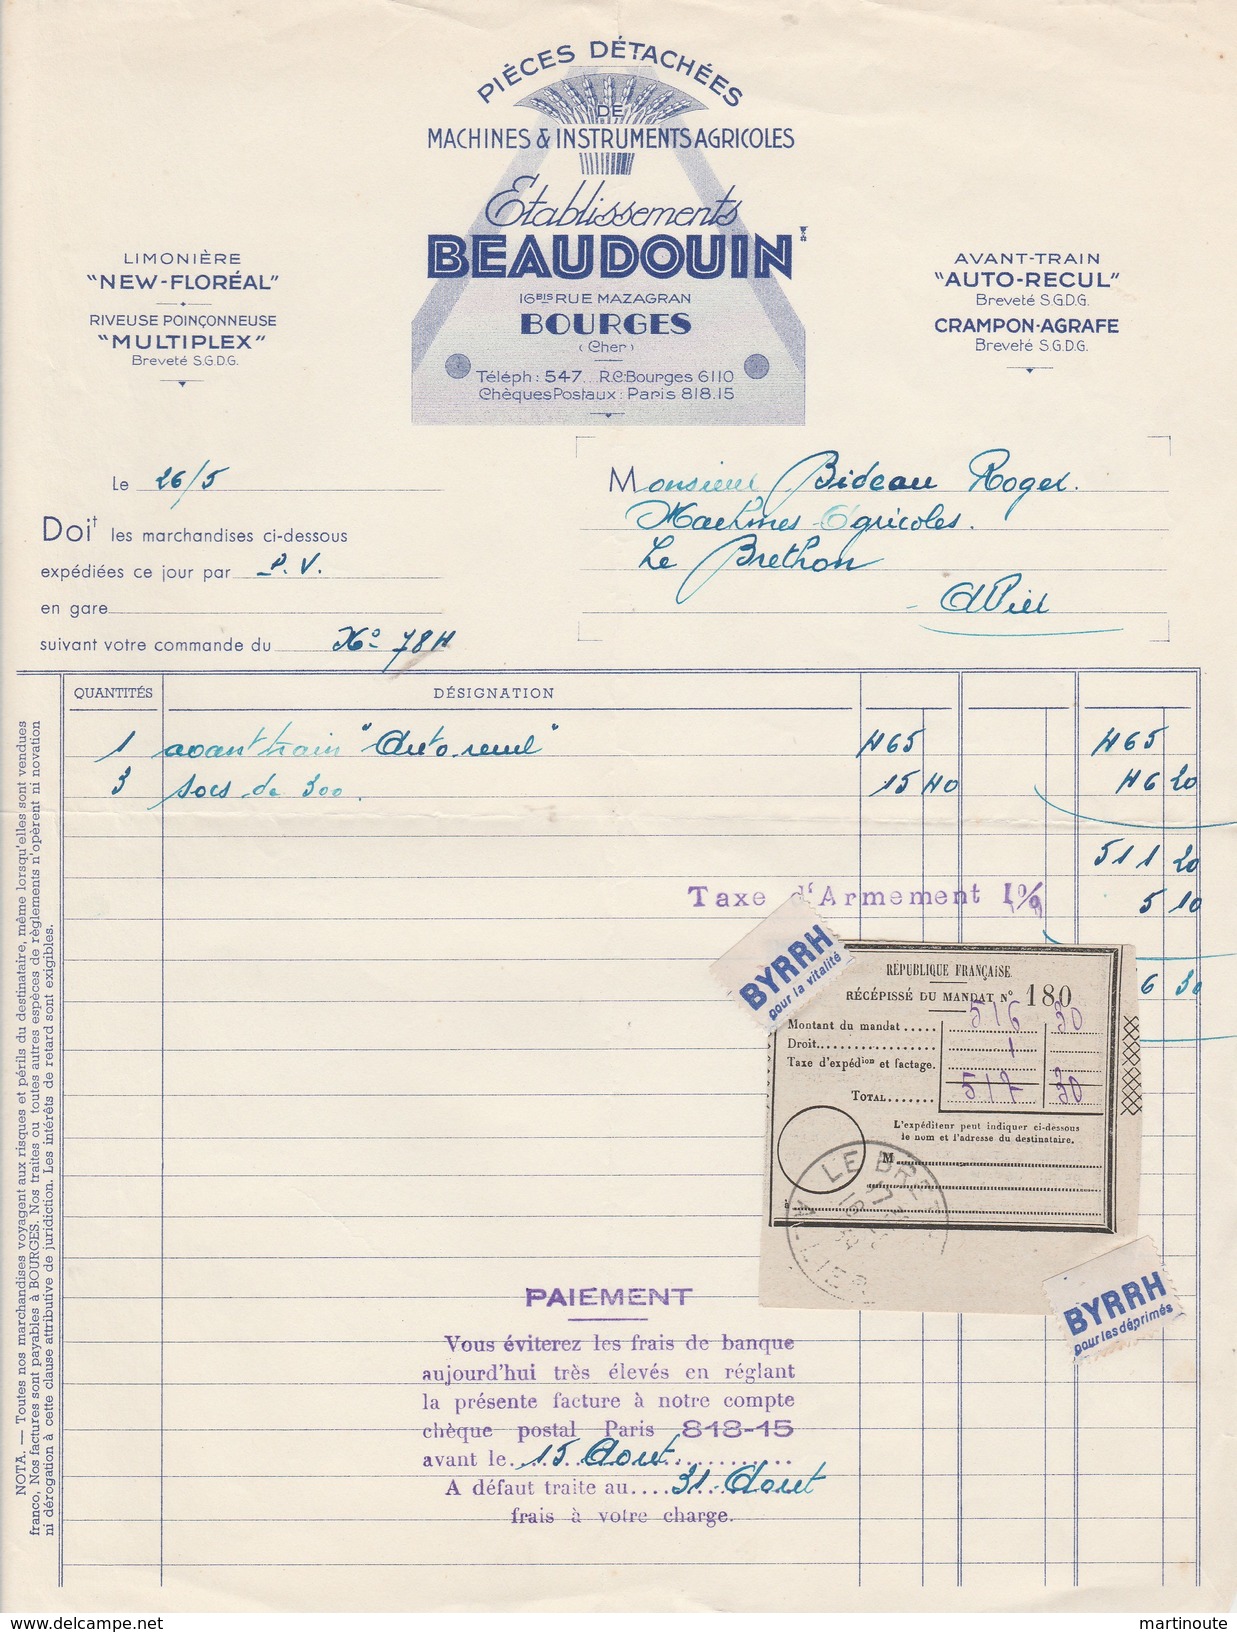 PIÈCES DÉTACHÉES
DE
MACHINES & INSTRUMENTS AGRICOLES
Etablissements
BEAUDOUIN
16BIS RUE MAZAGRAN
BOURGES
(Cher)
Téléph: 547... R.C. Bourges 6110
Chèques Postaux: Paris 818.15
LIMONIÈRE
"NEW-FLORÉAL"
RIVEUSE POINÇONNEUSE
"MULTIPLEX"
Breveté S.G.D.G.
AVANT-TRAIN
"AUTO-RECUL"
Breveté S.G.D.G.
CRAMPON-AGRAFE
Breveté S.G.D.G.
Le 26/5
Doit les marchandises ci-dessous
expédiées ce jour par P.V.
en gare
suivant votre commande du No 784
Monsieur Bideau Roger.
Machines Agricoles.
Le Brethon
Allier
QUANTITÉS DÉSIGNATION
1 avant train "Auto recul" 465 465
3 socs de 300. 15 40 46 20
511 20
Taxe d'Armement 1% 5 10
6 30
BYRRH
pour la vitalité
RÉPUBLIQUE FRANÇAISE
RÉCÉPISSÉ DU MANDAT N° 180
Montant du mandat ..... 516 30
Droit................. 1
Taxe d'expédion et factage.
TOTAL....... 517 30
L'expéditeur peut indiquer ci-dessous
le nom et l'adresse du destinataire.
M
à
LE BRET
17
16
ALLIER
BYRRH
pour les déprimés
PAIEMENT
Vous éviterez les frais de banque
aujourd'hui très élevés en réglant
la présente facture à notre compte
chèque postal Paris 818-15
avant le 15 Aout
A défaut traite au 31 Aout
frais à votre charge.
NOTA. — Toutes nos marchandises voyagent aux risques et périls du destinataire, même lorsqu'elles sont vendues
franco, Nos factures sont payables à BOURGES. Nos traites ou toutes autres espèces de règlements n'opèrent ni novation
ni dérogation à cette clause attributive de juridiction. Les intérêts de retard sont exigibles.
www.delcampe.net
martinoute